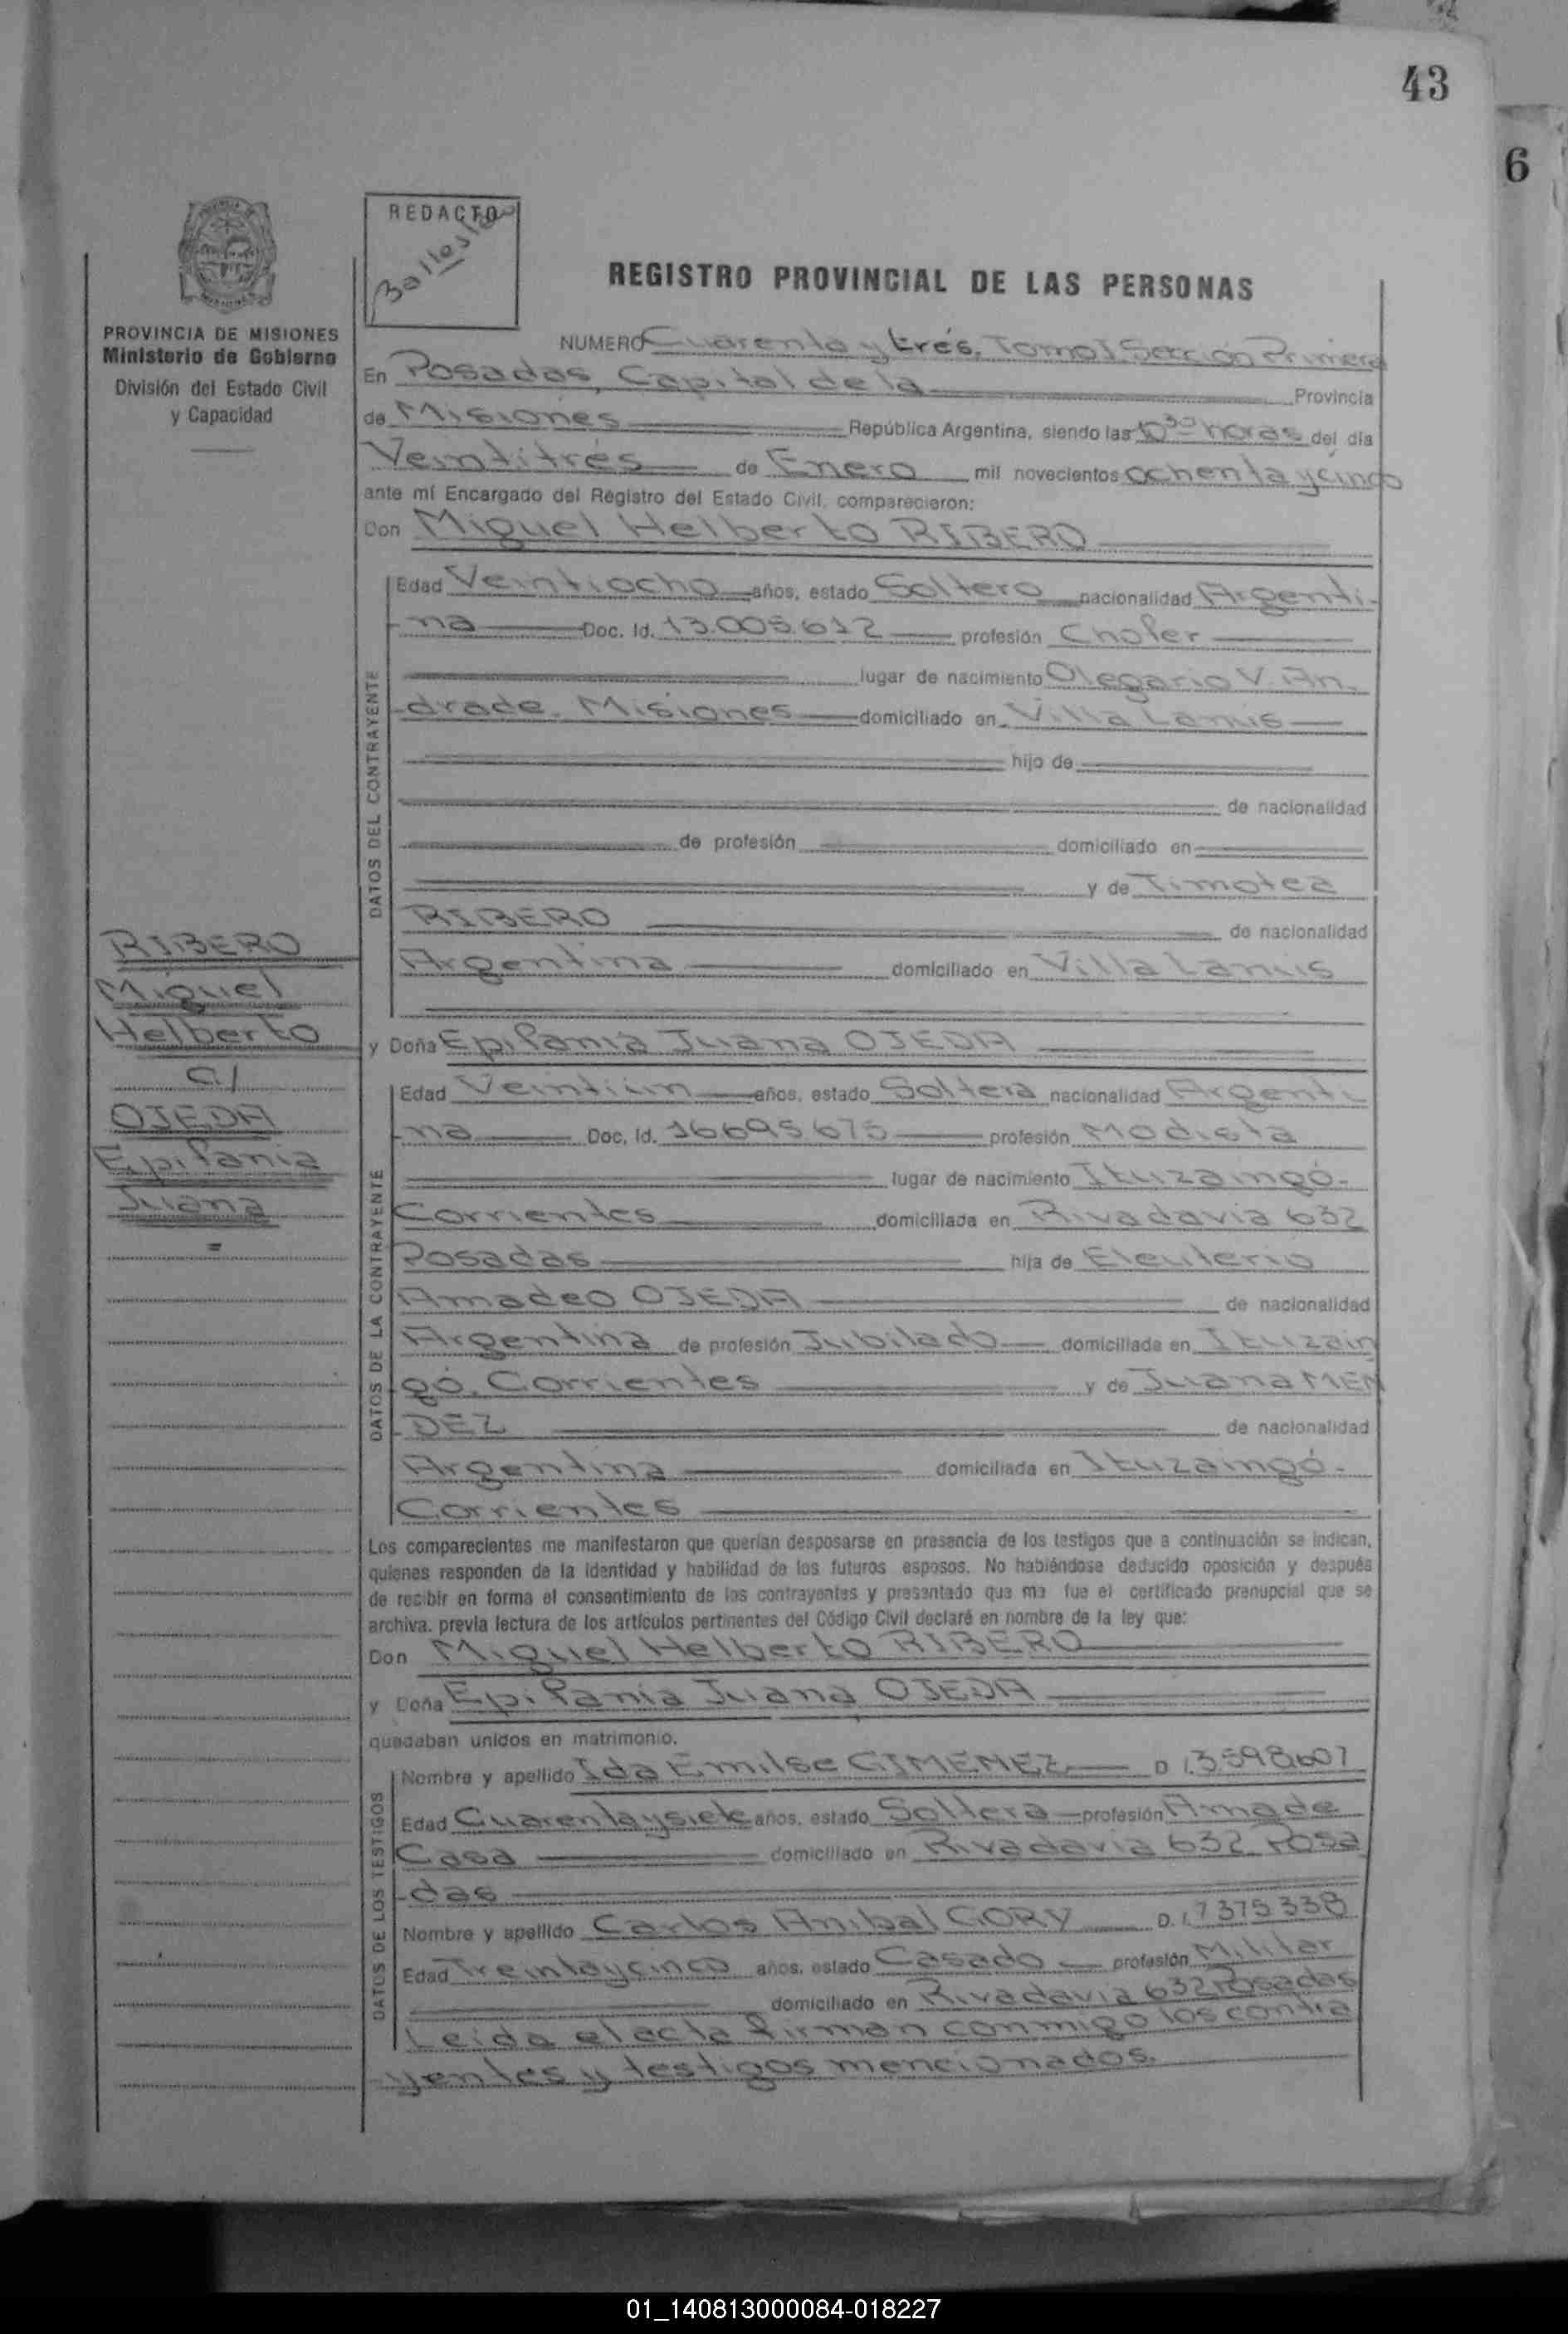 43
6
REDACTO
PROVINCIA DE MISIONES
Ministerio de Gobierno
División del Estado Civil
y Capacidad
REGISTRO PROVINCIAL DE LAS PERSONAS
NUMERO Cuarenta y trés. Tomo I Sección Primera
En Posadas, Capital de la Provincia
de Misiones República Argentina, siendo las 10 30 horas del día
Veintitrés de Enero mil novecientos ochenta y cinco
ante mí Encargado del Registro del Estado Civil, comparecieron:
Don Miguel Helberto RIBERO
DATOS DEL CONTRAYENTE
Edad Veintiocho años, estado Soltero nacionalidad Argenti-
na Doc. Id. 13.005.612 profesión Chofer
lugar de nacimiento Olegario V. An
drade. Misiones domiciliado en Villa Lanus
hijo de
de nacionalidad
de profesión domiciliado en
y de Timotea
RIBERO de nacionalidad
Argentina domiciliado en Villa Lanus
RIBERO
Miguel
Helberto
c/
OJEDA
Epifania
Juana
=
y Doña Epifania Juana OJEDA
DATOS DE LA CONTRAYENTE
Edad Veintiun años, estado Soltera nacionalidad Argenti
-na Doc. Id. 16695675 profesión Modista
lugar de nacimiento Ituzaingó-
Corrientes domiciliada en Rivadavia 632
Posadas hija de Eleuterio
Amadeo OJEDA de nacionalidad
Argentina de profesión Jubilado domiciliada en Ituzain
gó. Corrientes y de Juana MEN
-DEZ de nacionalidad
Argentina domiciliada en Ituzaingó-
Corrientes
Los comparecientes me manifestaron que querían desposarse en presencia de los testigos que a continuación se indican,
quienes responden de la identidad y habilidad de los futuros esposos. No habiéndose deducido oposición y después
de recibir en forma el consentimiento de los contrayentes y presentado que me fue el certificado prenupcial que se
archiva, previa lectura de los artículos pertinentes del Código Civil declaré en nombre de la ley que:
Don Miguel Helberto RIBERO
y Doña Epifania Juana OJEDA
quedaban unidos en matrimonio.
DATOS DE LOS TESTIGOS
Nombre y apellido Ida Emilse GIMENEZ D I. 3598607
Edad Cuarenta y siete años, estado Soltera profesión Ama de
Casa domiciliado en Rivadavia 632 Posa
-das
Nombre y apellido Carlos Anibal GORY D. I. 7375338
Edad Treinta y cinco años, estado Casado profesión Militar
domiciliado en Rivadavia 632 Posadas
Leída el acta firman conmigo los contra
yentes y testigos mencionados.
01_140813000084-018227